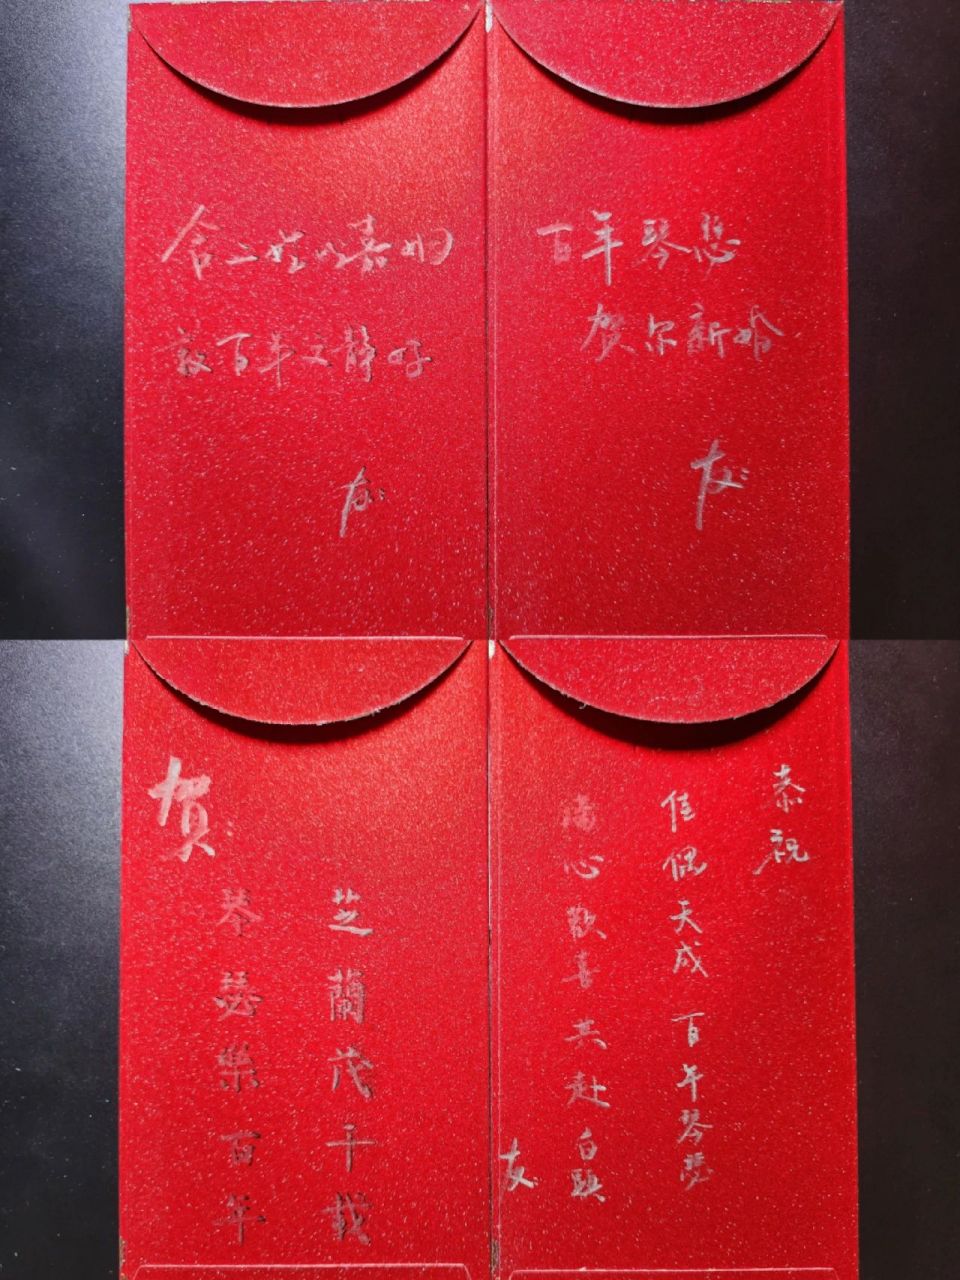 合二姓以嘉姻
敦百年之静好
友:
百年琴瑟
贺尔新婚
友:
賀:
芝蘭茂千載
琴瑟樂百年
恭祝
佳偶天成 百年琴瑟
滿心歡喜 共赴白頭
友: